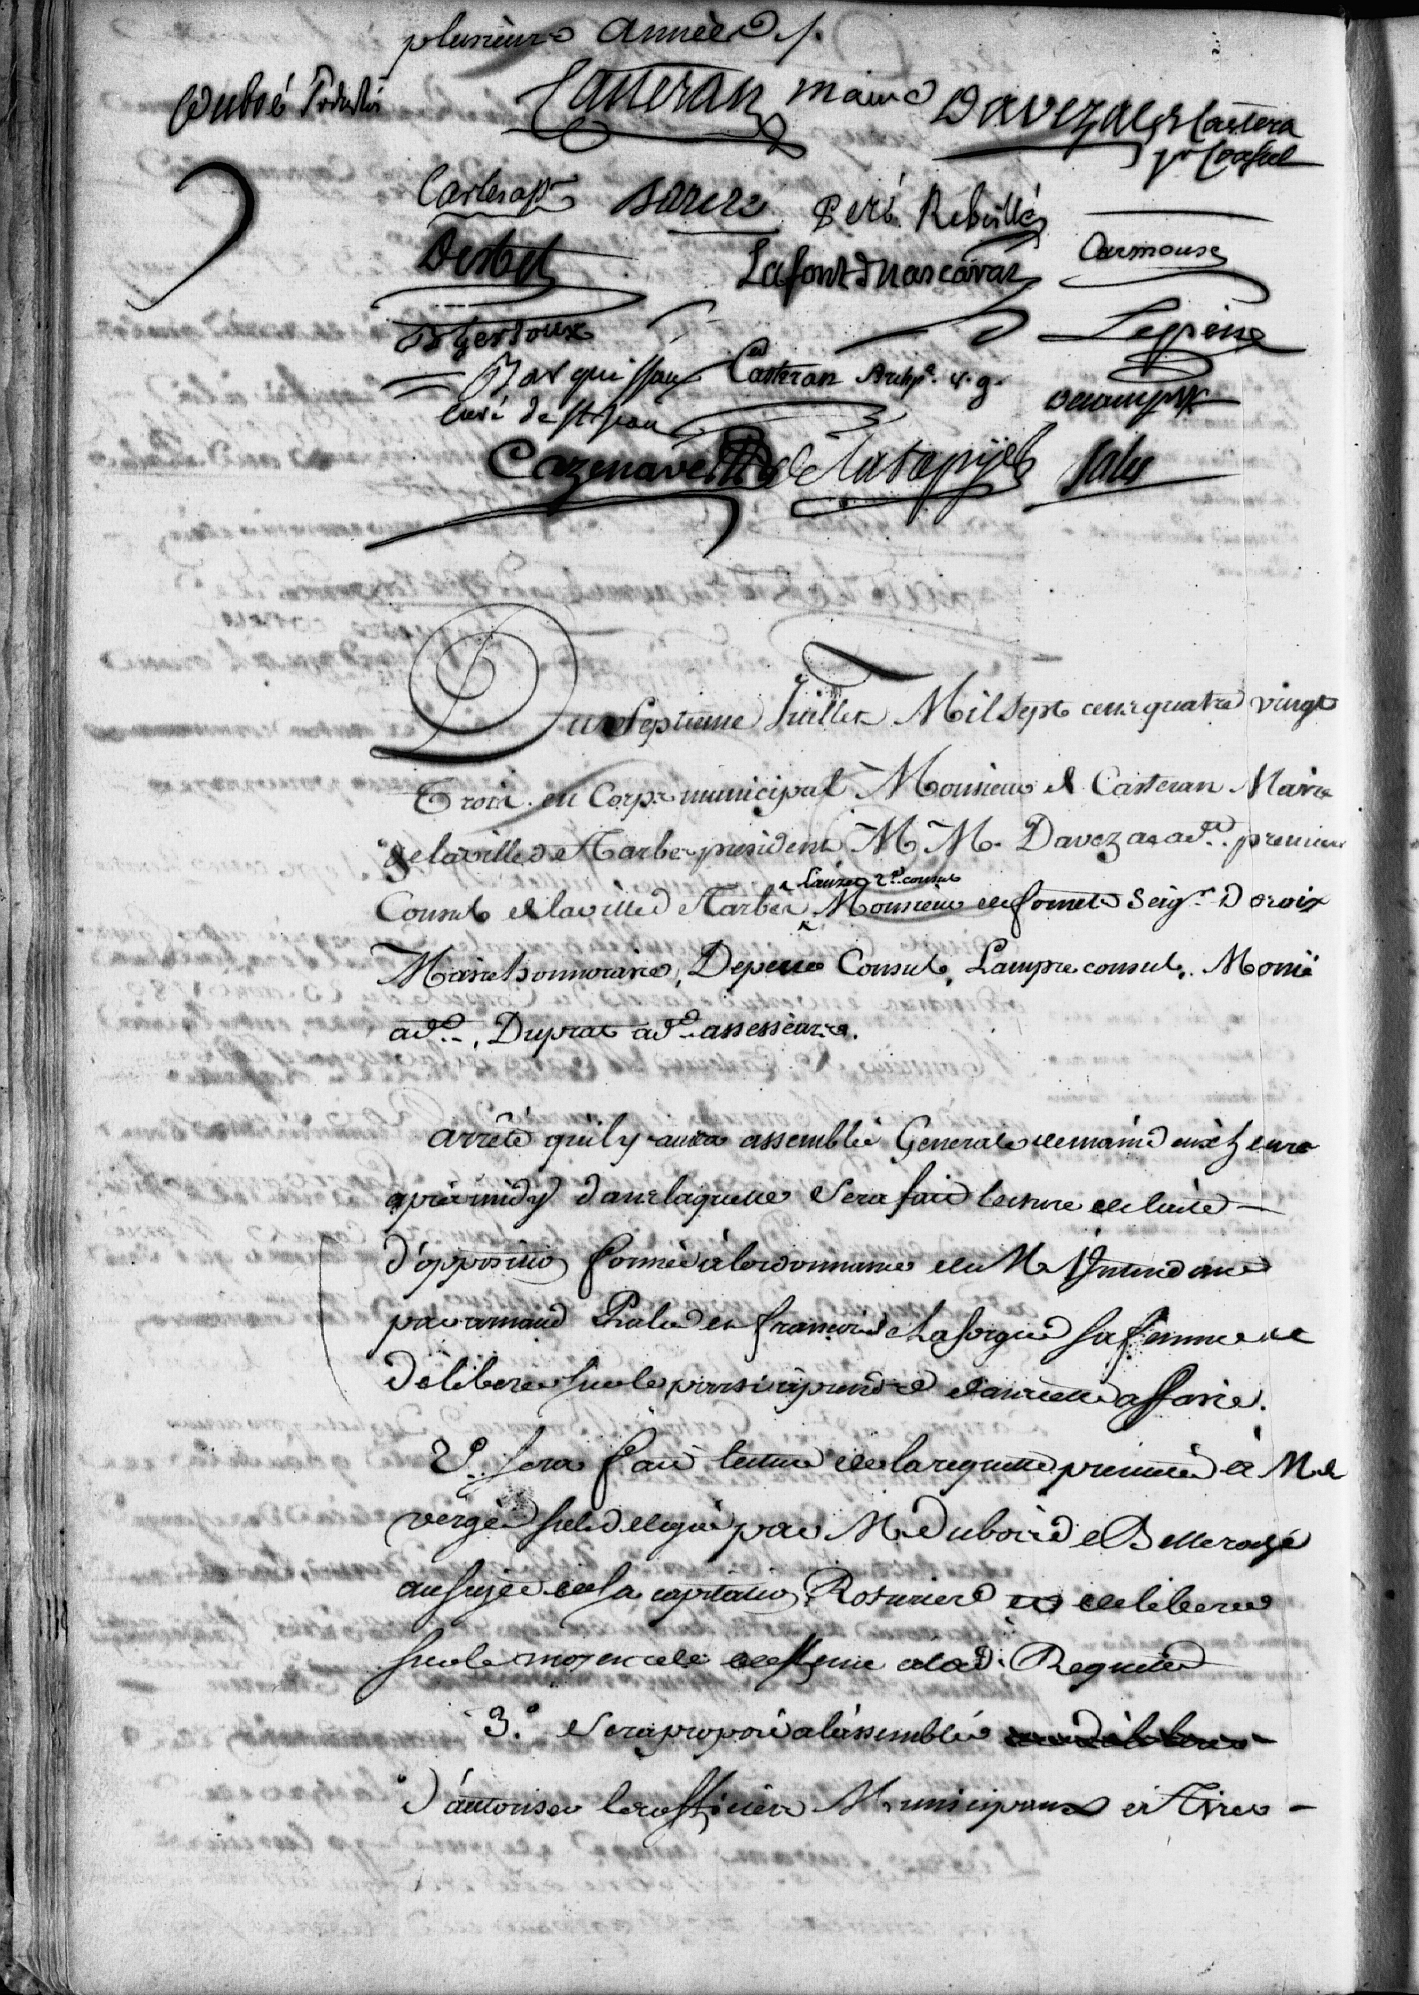 plusieurs années /.
Casteran maire Davezac Castera
pr Consul
Dubié
Casteras Sarere Peré Rebeillé
Destet Lafont Carmouse
Lespiene
Casteran Archip.
curé de St Jean Decamps
Cazenave de Latapy Salis
Du Septieme Juillet Mil Sept cens quatre vingt
Trois en Corps municipal Monsieur de Casteran Maire
de la ville de Tarbes president M M. Davezac adt. premier
Consul de la ville de Tarbes Monsieur de fornets Seigr. Doroix
2d. consul
Maire honnoraire, Deperre Consul, Lampre consul, Monié
adt., Duprat adt. assesseurs.
arrêté quil y aura assemblée Generale demain deux heure
après midy dans laquelle Sera fait lecture de lacte
d'opposition formée à lordonnance de Mr. Lintendant
par arnaud Piale et françoise Laforgue sa femme et
délibérer sur le parti à prendre dans cette affaire.
2°. Sera fait lecture de la requette presentée à M. de
vergés subdelegué par M. Dubois de Bellerouge
au sujet de sa capitation Roturiere et deliberer
sur le moyen de deffense a lad. Requette
3.° Sera proposé a lassemblée
D'autoriser les officiers Municipaux à Tirer